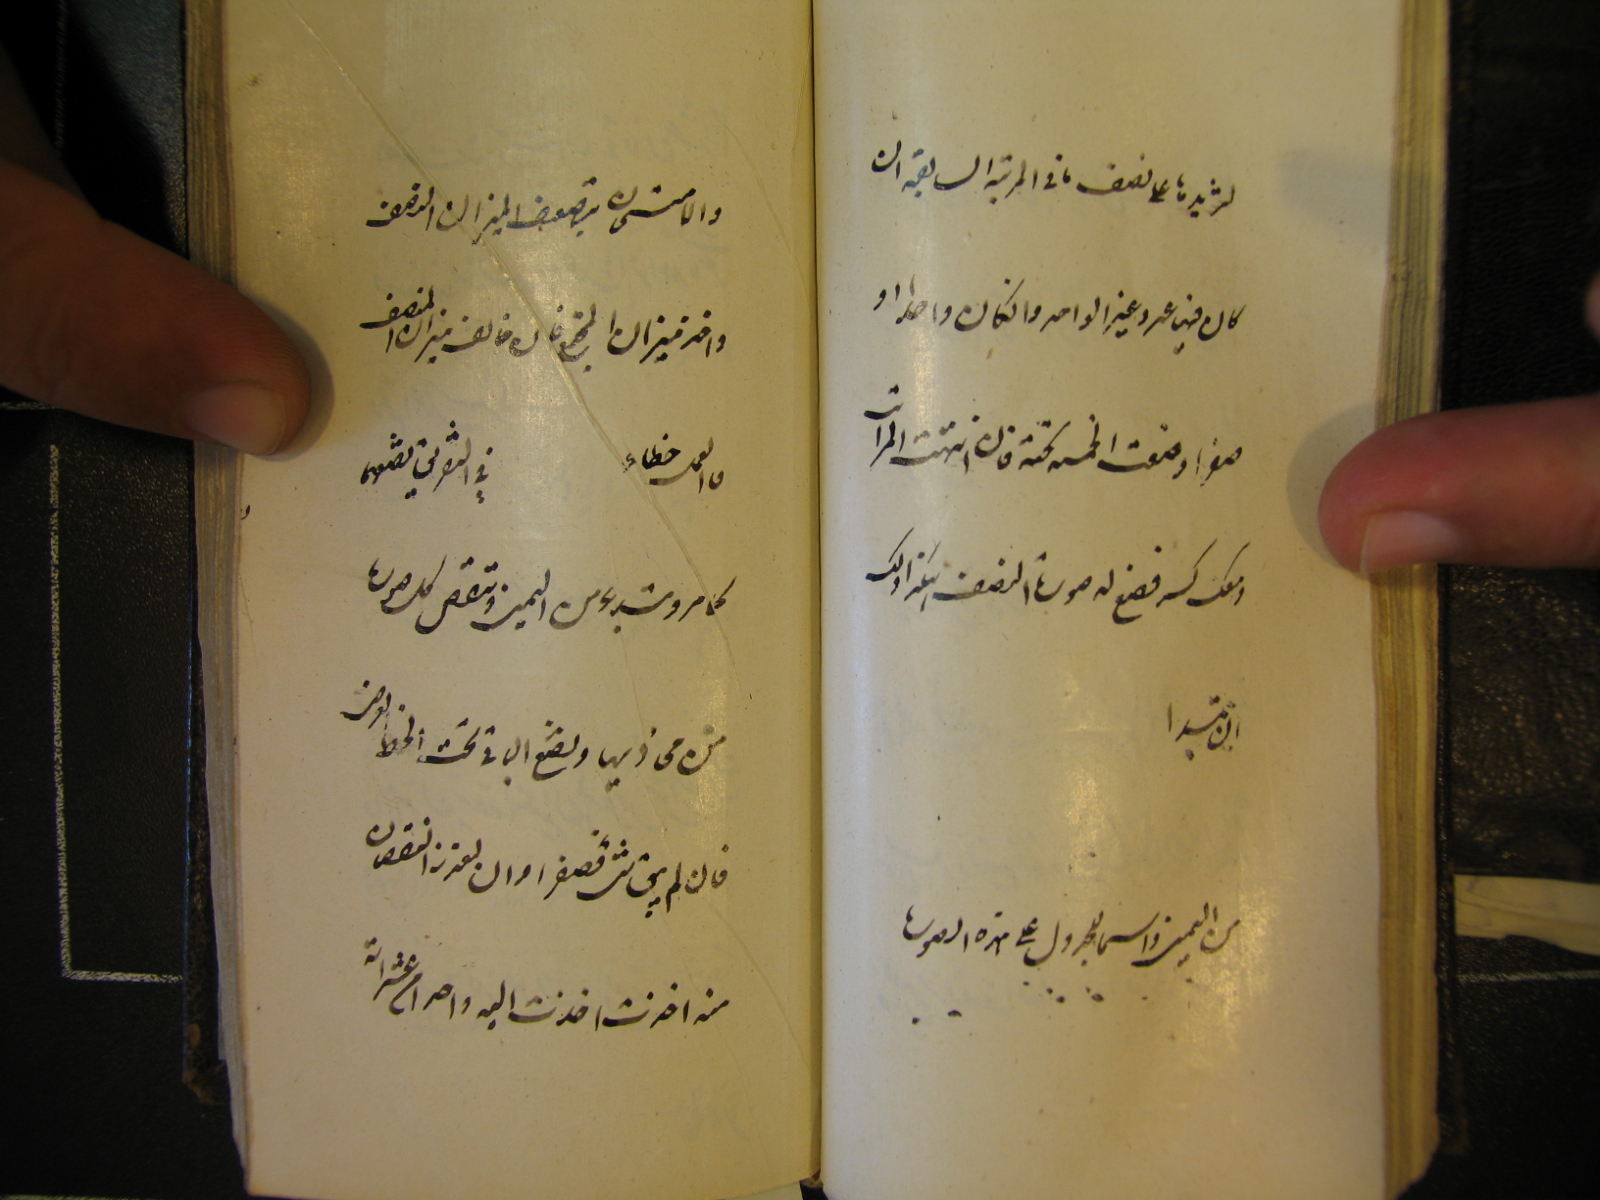 لتزيدها على نصف ما في المرتبة السابقة ان
كان فيها عدد غير الواحد وان كان واحدا او
صفرا وضعت الخمسة تحته فان انتهت المراتب
ومعك كسر فضع له صورة النصف هكذا ولك
ان تبتدأ
من اليمين راسما للجدول على هذه الصورة
والامتحان بتضعيف ميزان النصف
واخذ ميزان المجتمع فان خالف ميزان المنصف
فالعمل خطاء في التفريق تضعهما
كما مر وتبدء من اليمين وتنقص كل صورة
من محاذيها وتضع الباقي تحت الخط العرضي
فان لم يبق شئ فصفرا وان تعذر النقصان
منه اخذت اليه واحدا من عشراته